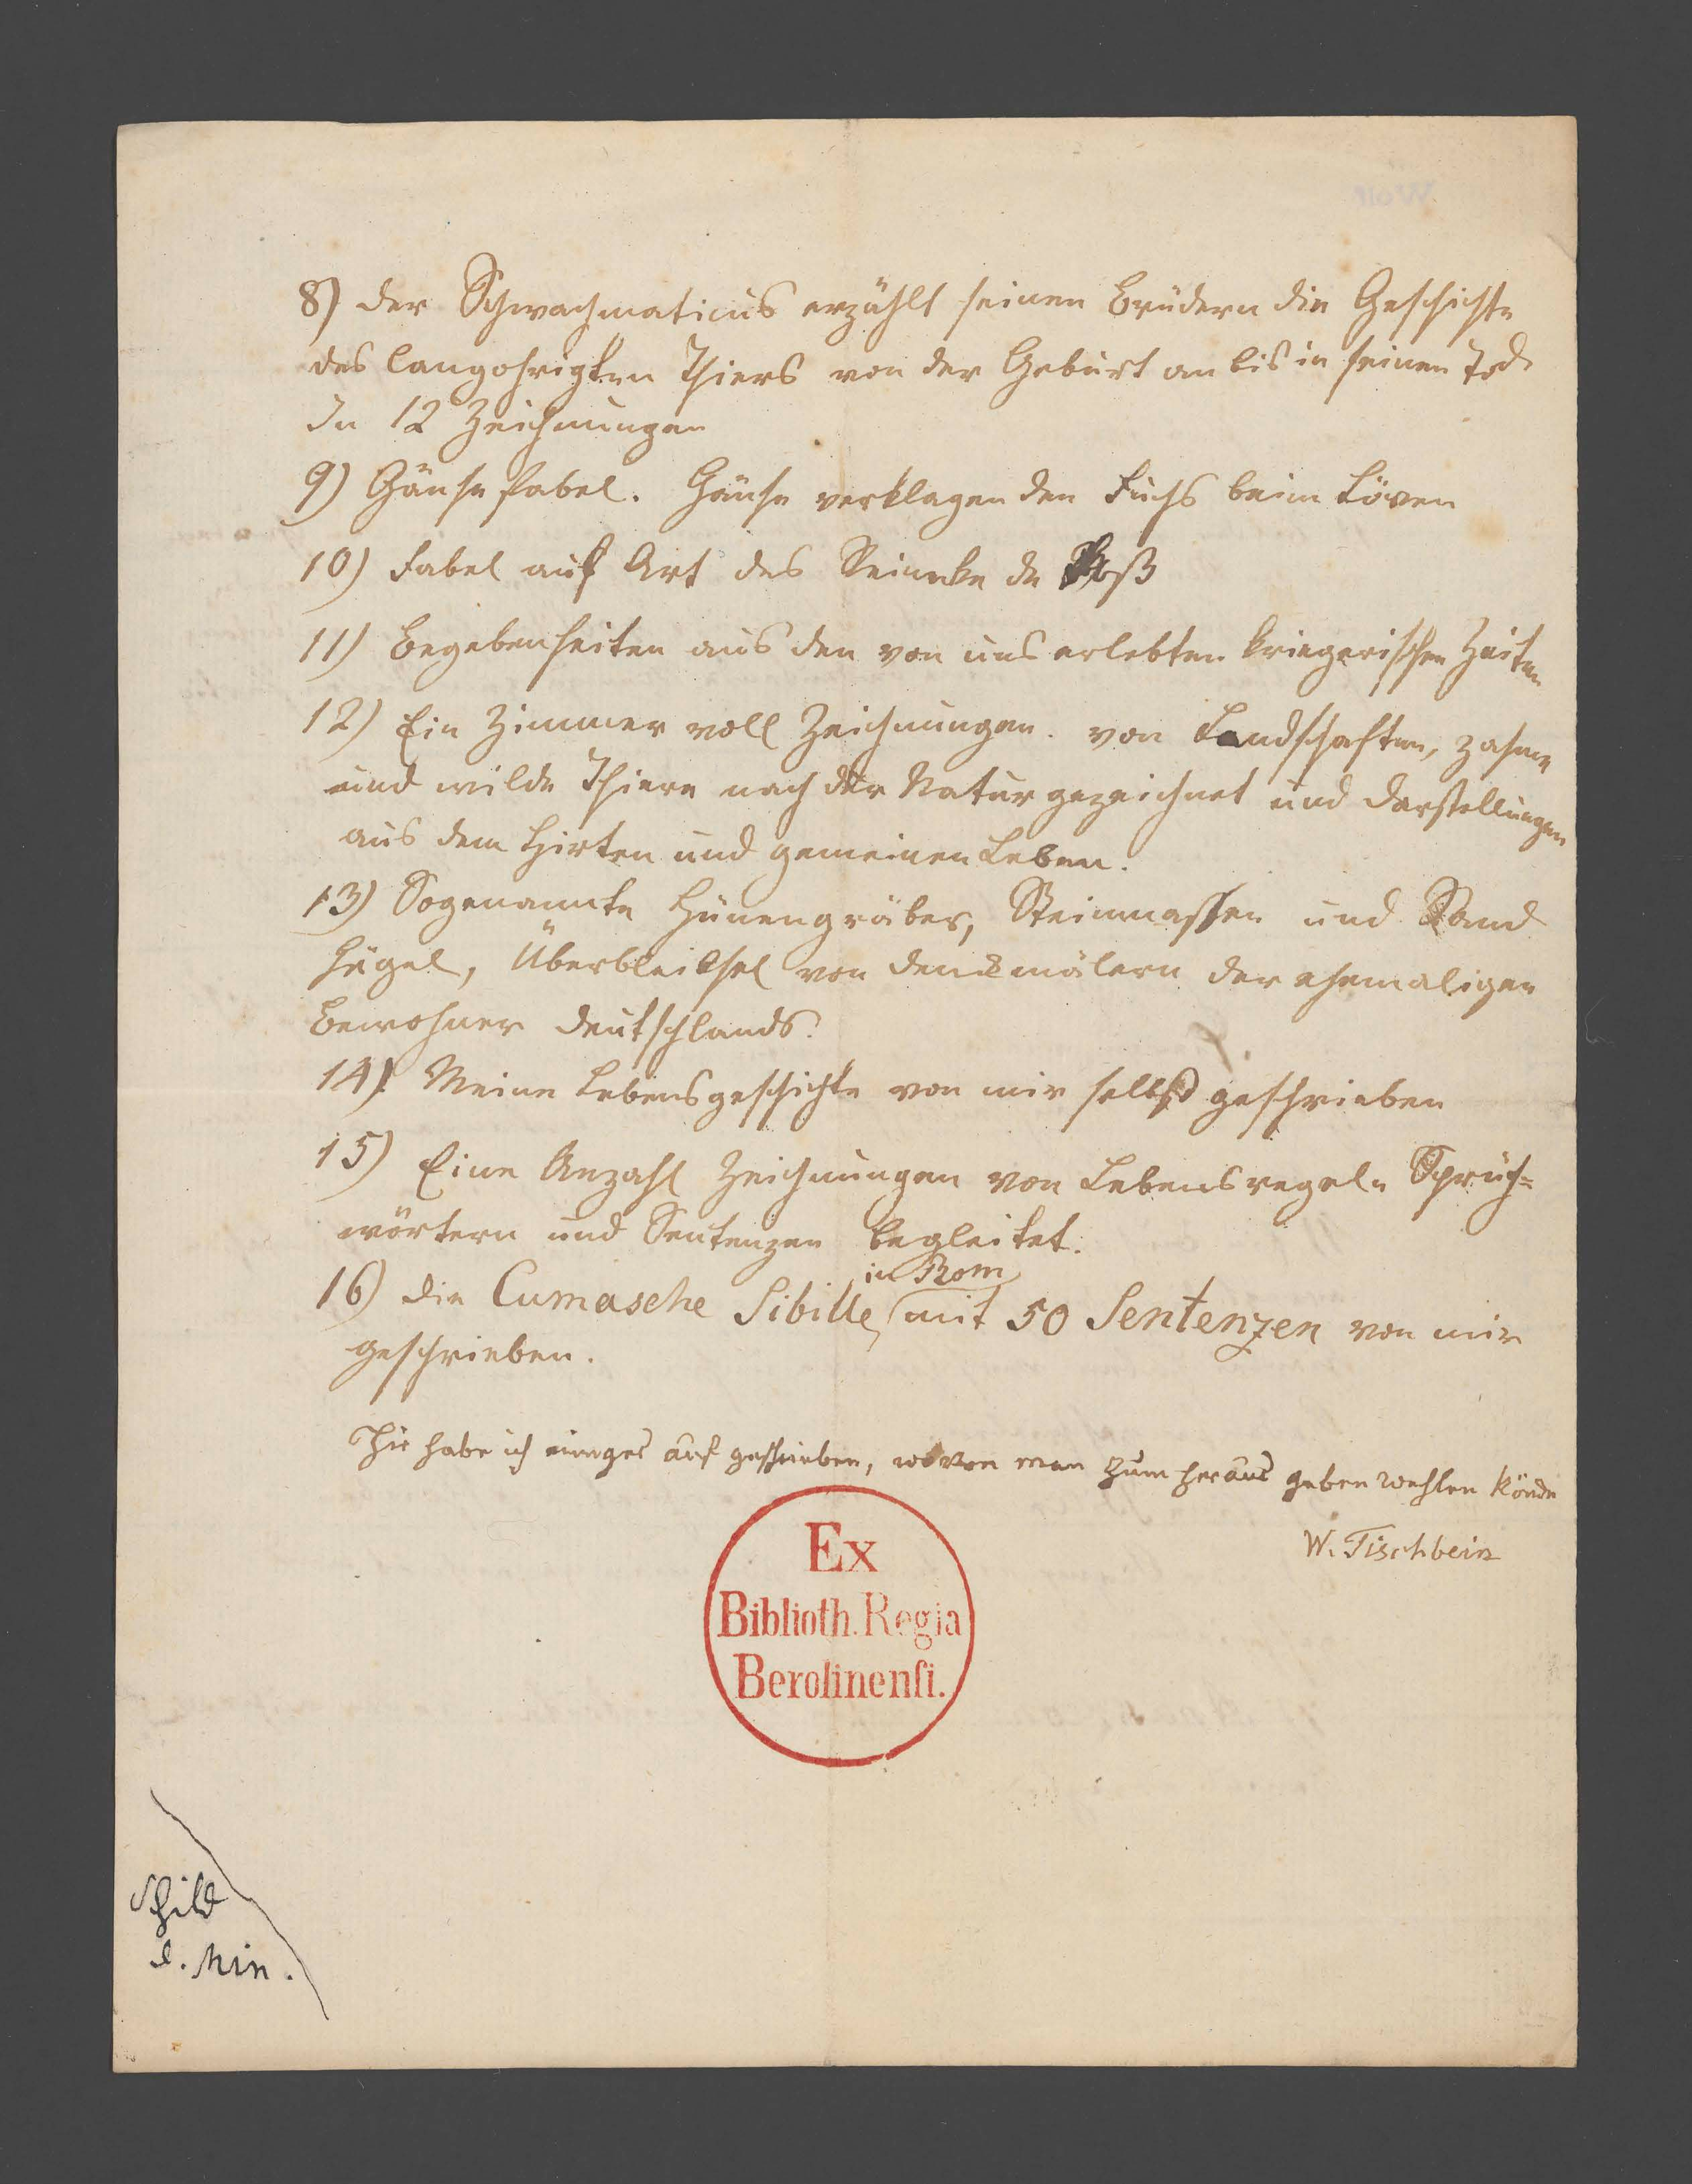 8) der Schwachmaticus erzählt seinen Brüdern die Geschichte
des langohrigten Thiers von der Geburt an bis in seinen Tod.
In 12 Zeichnungen
9) Gänse fabel. Gänse verklagen den Fuchs beim Löven
10) Fabel auf Art des Reineke de Voß
11) Begebenheiten aus den von uns erlebten kriegerischen Zeiten
12) Ein Zimmer voll Zeichnungen. von Landschaften, zahme
und wilde Thiere nach der Natur gezeichnet und darstellungen
aus dem Hirten und gemeinen Leben.
13) Sogenannte Hünengräber, Steinmassen und Sand
hügel, Überbleibsel von denkmälern der ehemaligen
Bewohner deutschlands.
14) Meine Lebensgeschichte von mir selbst geschrieben
15) Eine Anzahl Zeichnungen von Lebensregeln Sprüch=
wörtern und Sentenzen begleitet.
in Rom
16) die Cumasche Sibille, mit 50 Sentenzen von mir
geschrieben.
Hir habe ich einiges auf geschrieben, wovon man zum heraus geben wehlen könde
W. Tischbein
Ex
Biblioth. Regia
Berolinenſi.
Schild
d. Min.